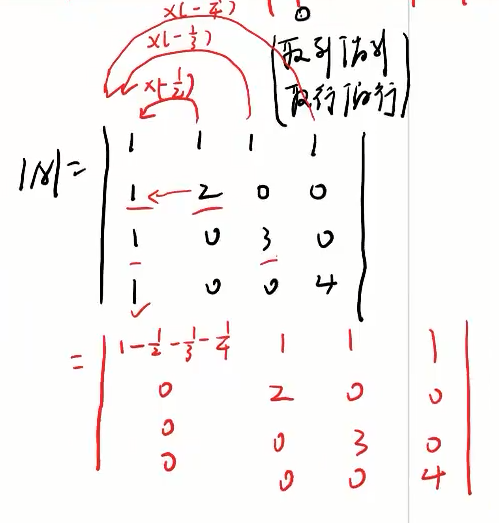 ×(-1/4)
×(-1/3)
×(-1/2)
0
取列消列
取行消行
|A|=
1 1 1 1
1 2 0 0
1 0 3 0
1 0 0 4
=
1-1/2-1/3-1/4 1 1 1
0 2 0 0
0 0 3 0
0 0 0 4